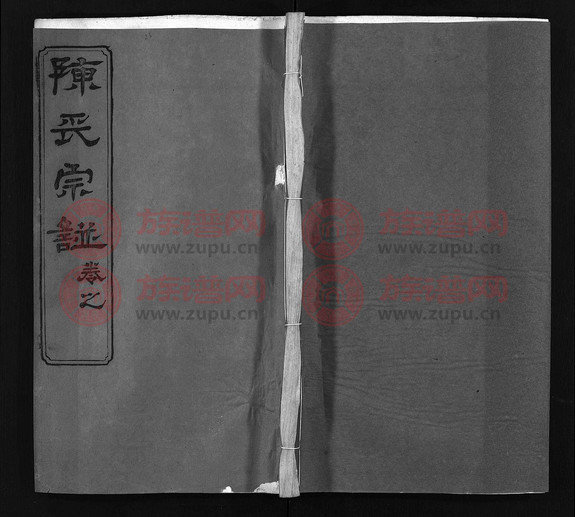 陳氏宗譜
卷之
族譜网 族譜网
www.zupu.cn www.zupu.cn
族譜网 族譜网
www.zupu.cn www.zupu.cn